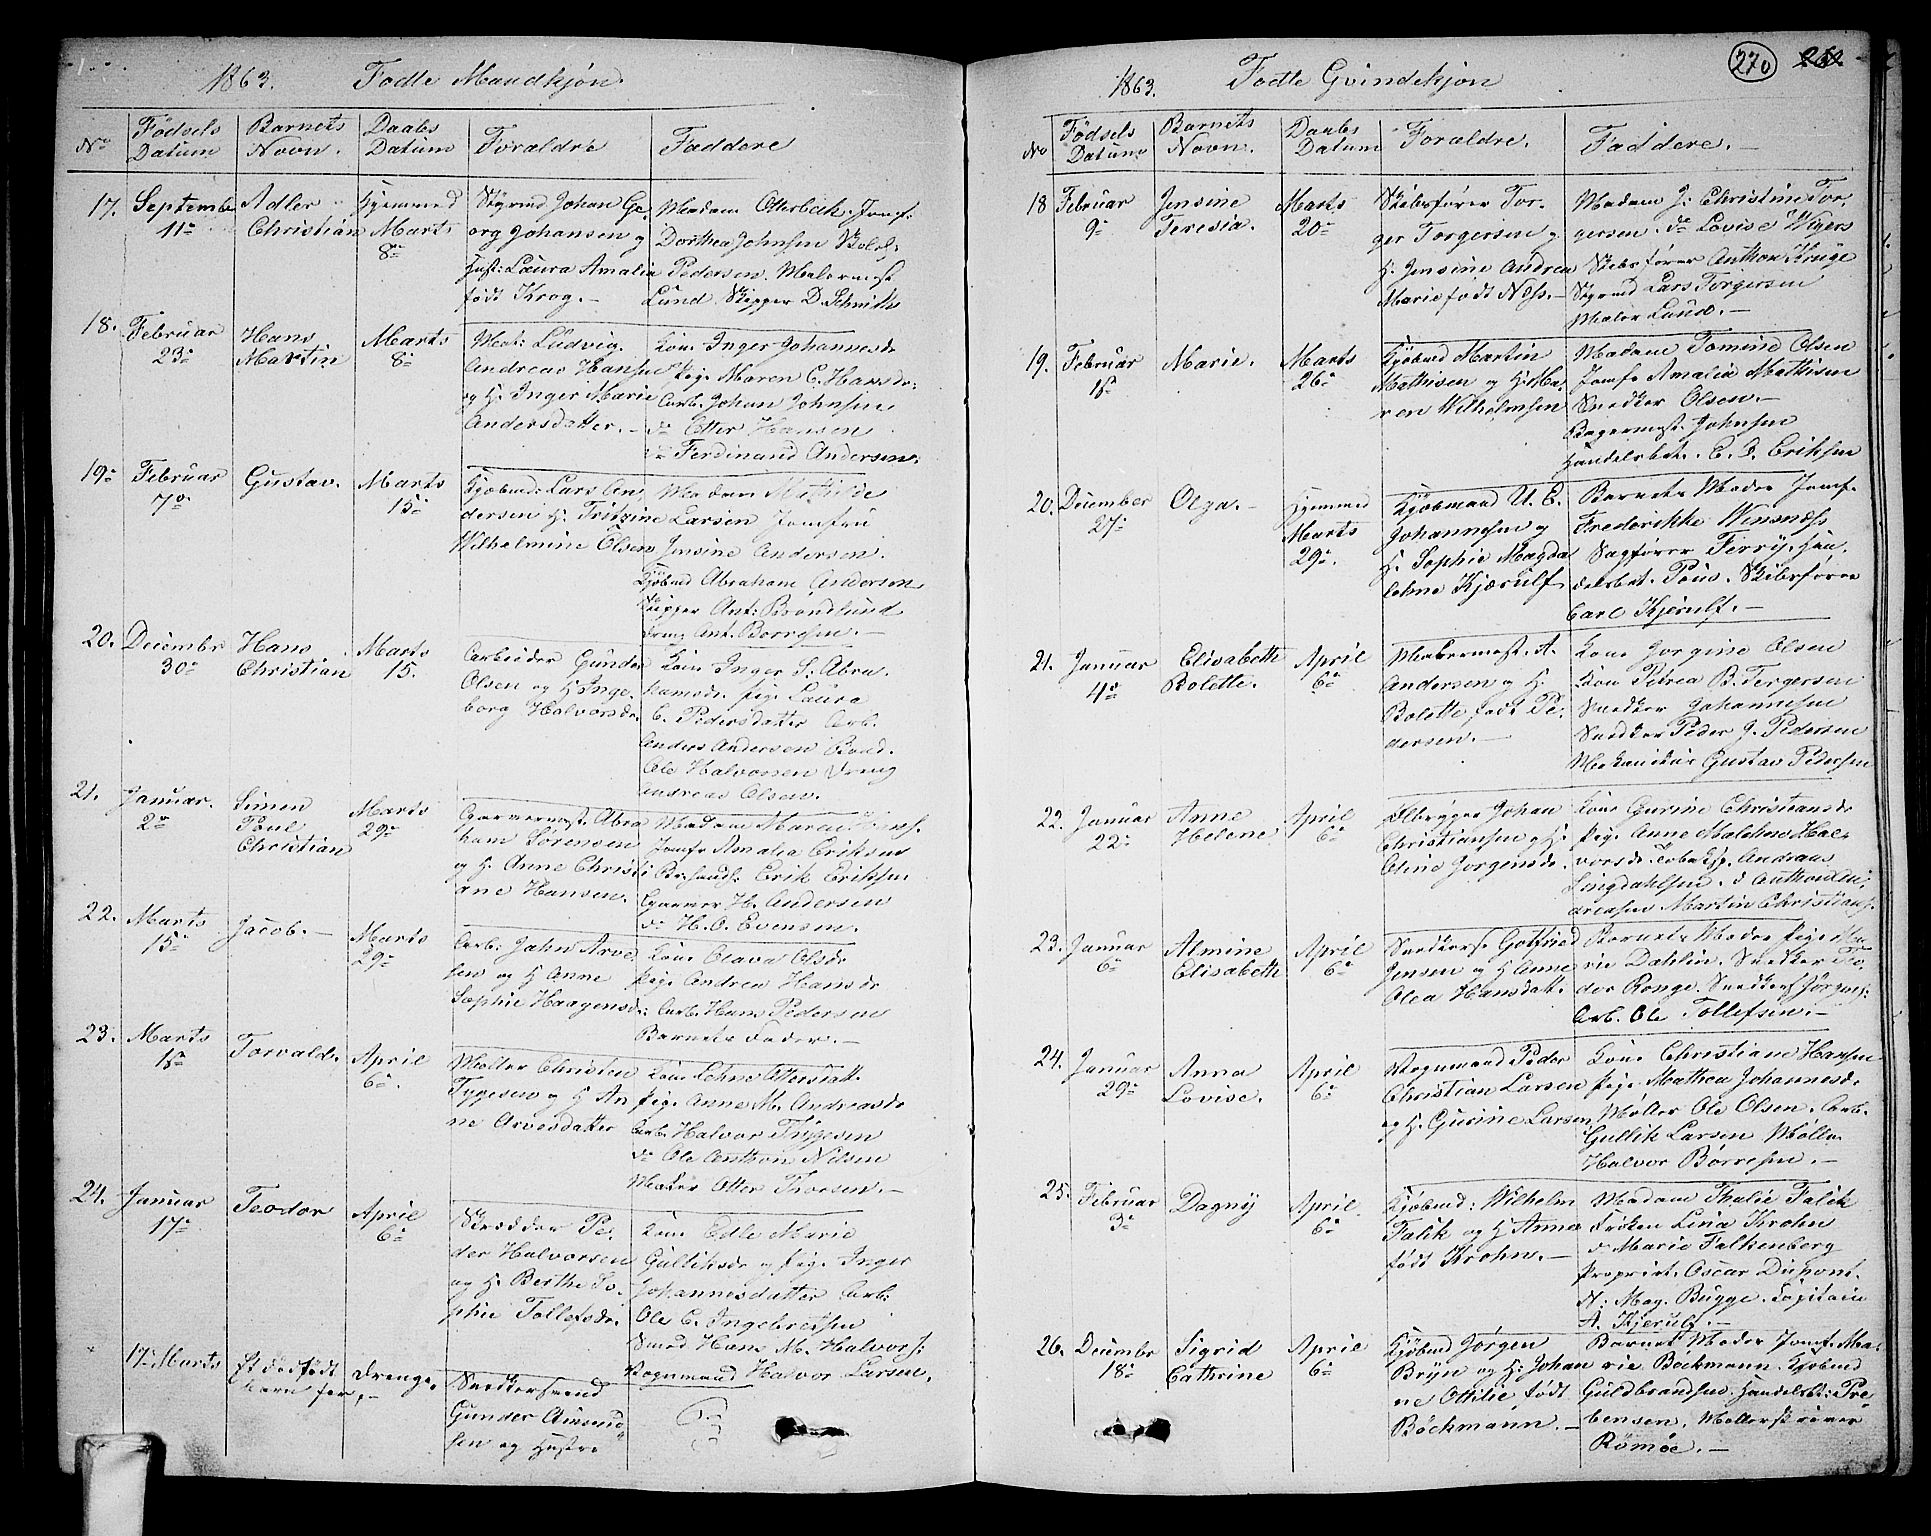 1863. Fødte Mandkjøn
No Fødsels Datum Barnets Navn. Daabs Datum Forældre Faddere
17. September 11te Adler Christian Hjemmed Marts 8de
Styrmd Johan Ge-
org Johansen og
Hust: Laura Amalia
født Krog. –
Madam Otterbeck. Jomf.
Dorthea Johnsen
Pedersen. Malermest
Lund. Skipper D. Schmith
18. Februar 23de Hans Martin Marts 8de
Mat: Ludvig
Andreas Hansen
og H. Inger Marie
Andersdatter. –
Kone Inger Johannesdr
Pige Maren C. Hansdr.
Arb. Johan Johnsen
do Otter Hansen
do Ferdinand Andersen.
19. Februar 7de Gustav. Marts 15de
Kjøbmd: Lars An-
dersen H. Fritzine
Wilhelmine Olsen
Madam Mathilde
Larsen Jomfru
Jensine Andersen.
Kjøbmd Abraham Andersen
Skipper Ant: Brondlund
Dreng Ant. Borresen. –
20. Decembr 30te Hans Christian Marts 15.
Arbeider Gunder
Olsen og H. Inge-
borg Halvorsdr.
Kone Inger S. Abra-
hamsdr. Pige Laura
C. Pedersdatter Arb.
Anders Andersen
Ole Halvorsen Dreng
Andreas Olsen.
21. Januar. 2de Simon Poul Christian Marts 29de
Garvermest. Abra
ham Sørensen
og H. Anne Christi
ane Hansen.
Madam Maren
Jomfr Amalia Eriksen
Erik Eriksen
Garver H. Andersen
do H. O. Evensen.
22. Marts 15de Jacob. – Marts 29de
Arb: Jahn Arve-
sen og H Anne
Sophie Haagensdr:
Kone Olava Olsdr
Pige Andrea Hansdr
Arb. Hans Pedersen
Barnets Fader. –
23. Marts 1ste Torvald. April 6te.
Møller Christen
Tygesen og H An
ne Arvesdatter
Kone Lehne Ottersdatt.
Pige Anne M. Andreasdr
Arb. Halvor Tygesen
do Ole Anthon Nilsen
Otter Thorsen. –
24. Januar 17de Teodor April 6te
Skrædder Pe-
der Halvorsen
og H. Berthe So-
phie Tollefsdr.
Kone Edle Marie
Gulliksdr og Pige Inger
Johannesdatter Arb:
Ole C. Ingebretsen
Smed Hans M. Halvors:
Vognmand Halvor Larsen.
17de Marts Et dødfødt Barn før, – Drenge.
Snedkersvend
Gunder Amund-
sen og Hustru
270 262.
1863. Fødte Qvindekjøn
No Fødsels Datum Barnets Navn. Daabs Datum Forældre. Faddere. –
18 Februar 9de Jensine Teresia. Marts 20de
Skibsfører Tor-
ger Torgersen og
H. Jensine Andrea
Marie født Næss. –
Madam J: Christine Tor-
gersen. do Lovise Wigers
Skibsfører Anthon Kruge
Styrmd Lars Torgersen
Maler Lund. –
19. Februar 1ste Marie. Marts 26de
Kjøbmd Martin
Mathisen og H: Ma-
ren Wilhelmsen
Madam Tomine Olsen
Jomfr Amalia Mathisen
Snedker Olsen. –
Bagermest. Johnsen
Handelsbet. E. O. Eriksen
20. December 27de Olga. – Hjemmed Marts 29de
Kjøbmand U. E.
Johannesen og
H. Sophie Magda
lehne Kjerulf
Barnets Moder Jomf.
Frederikke Winsnæs
Sagfører Ferry. Han-
delsbet. Pous. Skibsfører
Carl Kjerulf. –
21. Januar 4de Elisabeth Bolette. April 6te
Malermest. A.
Andersen og H.
Bolette født Pe-
dersen. –
Kone Jorgine Olsen
Kone Petrea B. Tergersen
Snedker Johannesen
Snedker Peder J. Pedersen
Mekanikus Gustav Pedersen
22. Januar 22de Anne Helene April 6te
Ølbrygger Johan
Christiansen og H.
Eline Jorgensdr.
Kone Gurine Christiansdr
Pige Anne Malehne Hal-
vorsdr Andreas
Lingdahlsen. d Anthon An-
dreasen Martin Christians.
23. Januar 6te Almine Elisabeth April 6te
Snedkers. Gotfried
Jensen og H Anne
Olea Hansdatt.
Barnets Moder Pige Ma-
rie Dahlin. Snedker To-
der Ronge. Snedkers Jørgens:
Arb. Ole Tollefsen. –
24. Januar 29de Anna Lovise. April 6te
Vognmand Peder
Christian Larsen
og H. Gurine Larsen
Kone Christiane Hansen
Pige Mathea Johannesdr
Møller Ole Olsen. Arb.
Gullik Larsen Møller
Halvor Børresen. –
25. Februar 3de Dagny April 6te
Kjøbmd: Wilhelm
Falik og H Anna
født Krohn. –
Madam Thalie Falik
Frøken Lina Krohn
d Marie Falkenberg
Propriet. Oscar Dupont.
N: Mag. Bugge. Kapitain
A. Kjerulf. –
26. Decembr 18de Sigrid Cathrine April 6te
Kjøbmd Jørgen
Bryn og H: Johan
ne Ottilie, født
Bockmann. –
Barnets Moder Jomf. Ma-
rie Bockmann. Kjøbmd
Guldbrandsen. Handelsbt: Pre-
bensen.
Rømøe. –